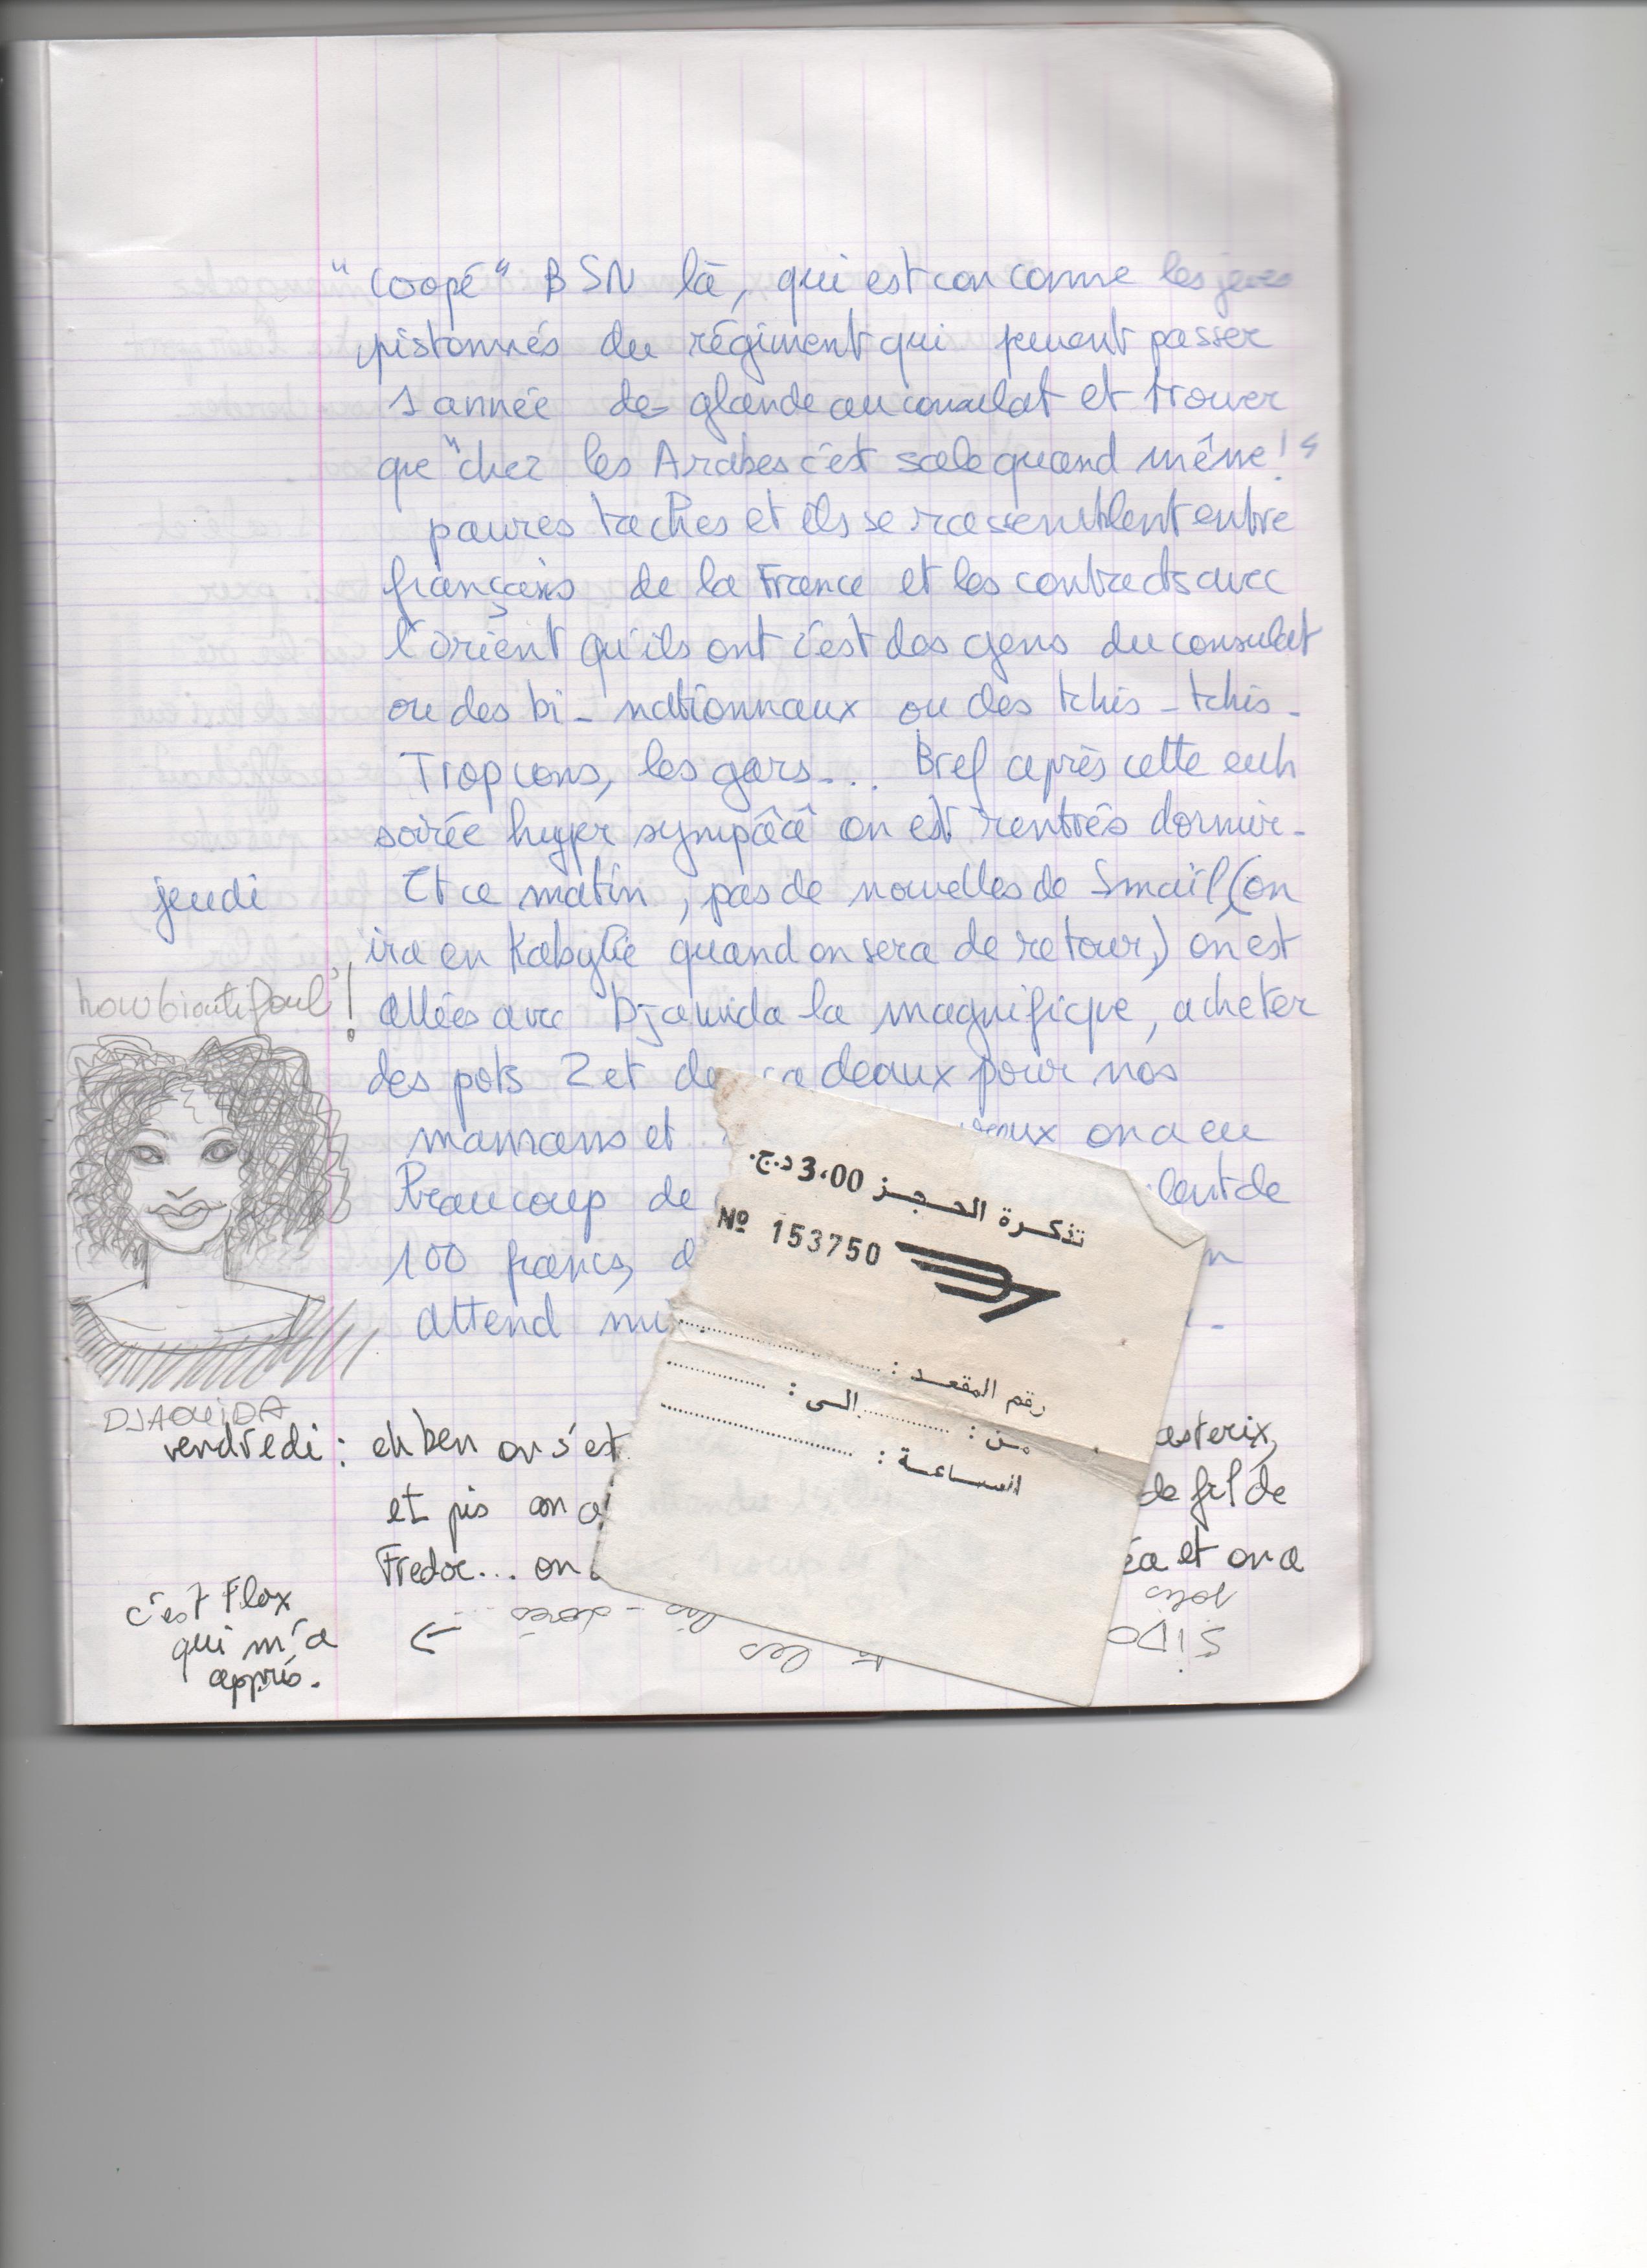 "coopé" BSN là, qui est con comme les
pistonnés du régiment qui peuvent passer
1 année de glande au consulat et trouver
que "chez les Arabes c'est sale quand même!"
pauvres taches et ils se rassemblent entre
français de la France et les contacts avec
l'orient qu'ils ont c'est des gens du consulat
ou des bi-nationnaux ou des tchis-tchis.
Trop cons, les gars... Bref après cette euh
soirée hyper sympââ on est rentrés dormir.
jeudi Et ce matin, pas de nouvelles de Smaïl (on
ira en Kabylie quand on sera de retour,) on est
how bioutifoul'! allées avec Djaouida la magnifique, acheter
des pots 2 et de cadeaux pour nos
mamans et on a eu
beaucoup de
100 francs,
attend
DJAOUIDA
vendredi: eh ben on s'est asterix,
et pis on de fil de
Fredoc... on et on a
c'est Flox
qui m'a
appris.
←
les
SIDO
تذكرة الحجز 3،00 د.ج.
Nº 153750
رقم المقعد :
من : الى :
الساعة :